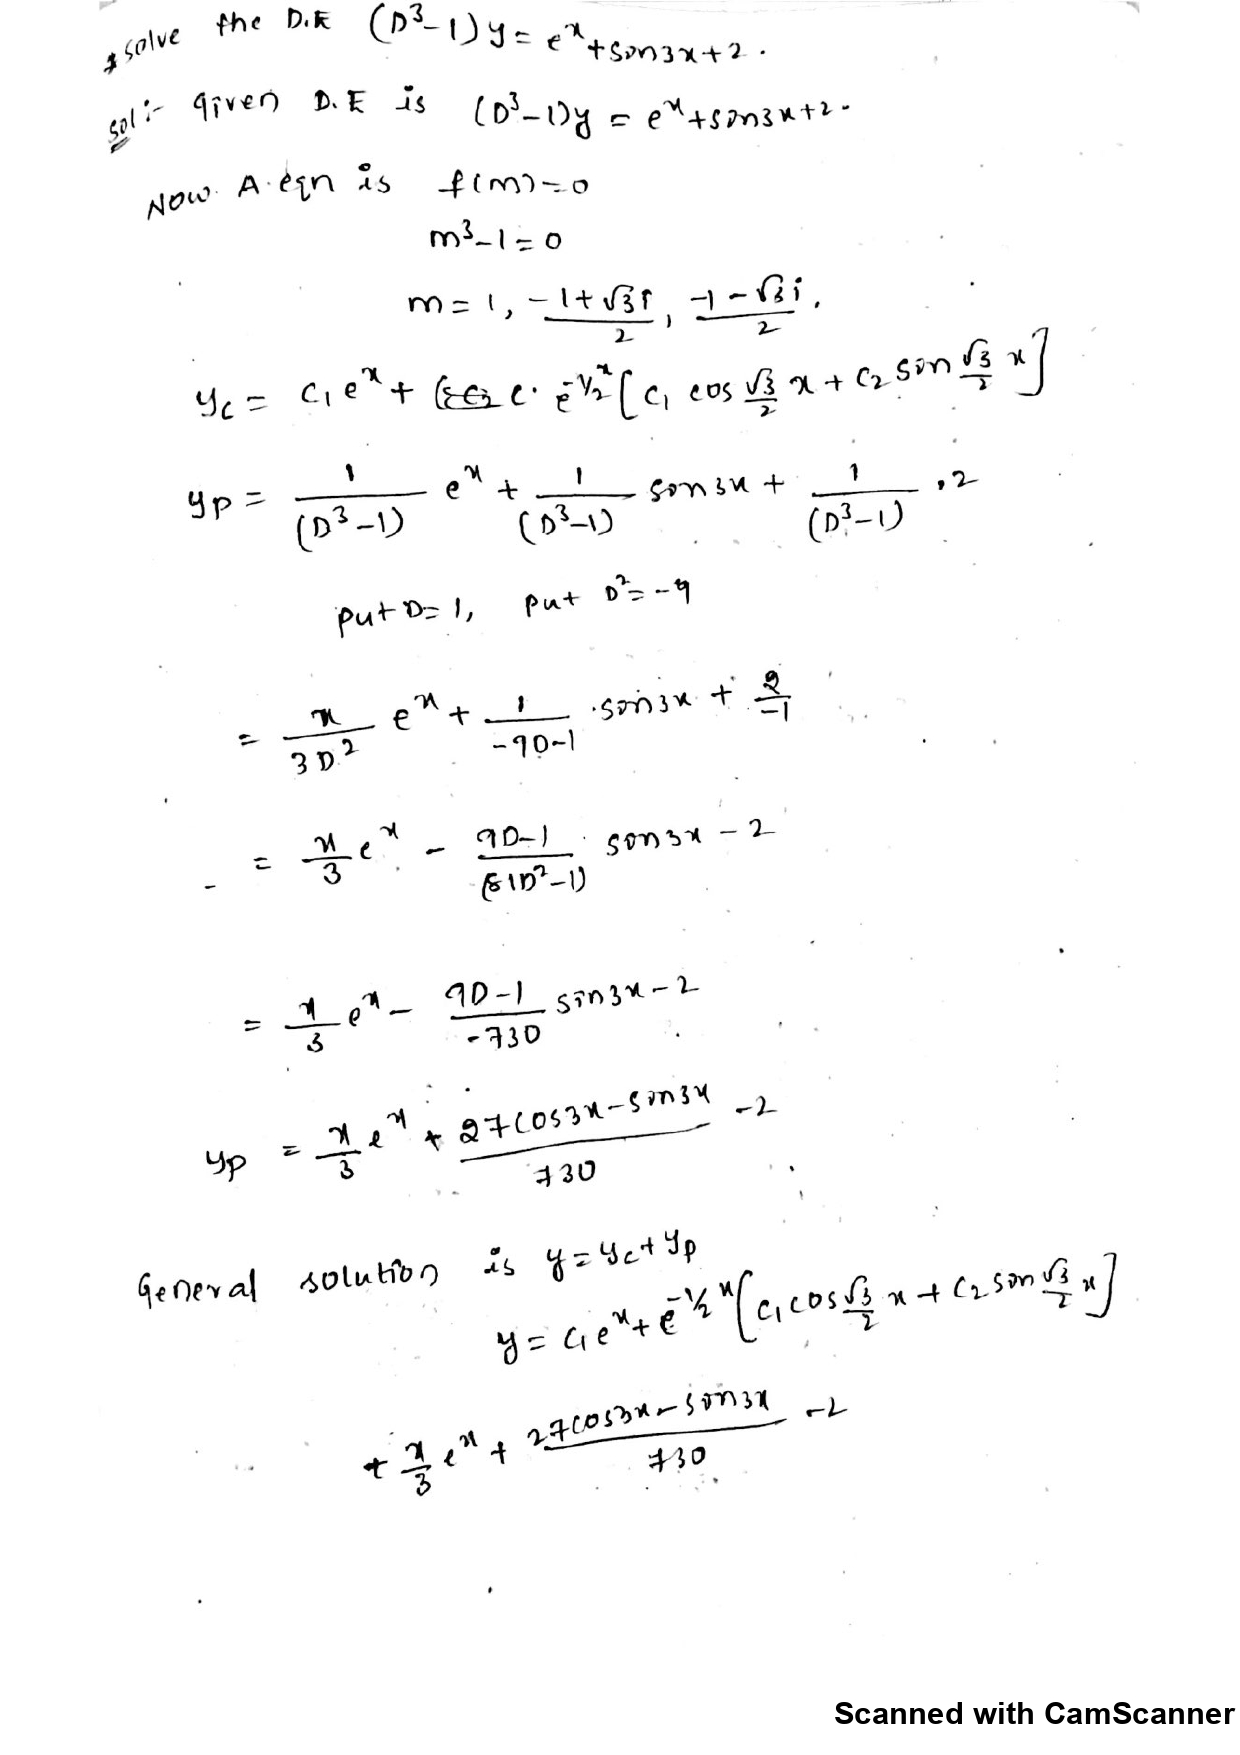 * solve the D.E (D³-1)y = eˣ+sin3x+2.
Sol:- Given D.E is (D³-1)y = eˣ+sin3x+2.
Now A.eqn is f(m)=0
m³-1=0
m = 1, (-1+√3i)/2, (-1-√3i)/2.
yc = c₁eˣ + e^(-1/2 x) [c₁ cos √3/2 x + c₂ sin √3/2 x]
yp = 1/(D³-1) eˣ + 1/(D³-1) sin3x + 1/(D³-1) .2
put D=1, put D²=-9
= x/3D² eˣ + 1/(-9D-1) .sin3x + 2/-1
= x/3 eˣ - (9D-1)/(81D²-1) . sin3x - 2
= x/3 eˣ - (9D-1)/-730 sin3x - 2
yp = x/3 eˣ + (27cos3x-sin3x)/730 -2
General solution is y=yc+yp
y = c₁eˣ+e^(-1/2 x) [c₁cos √3/2 x + c₂ sin √3/2 x]
+ x/3 eˣ + (27cos3x-sin3x)/730 -2
Scanned with CamScanner